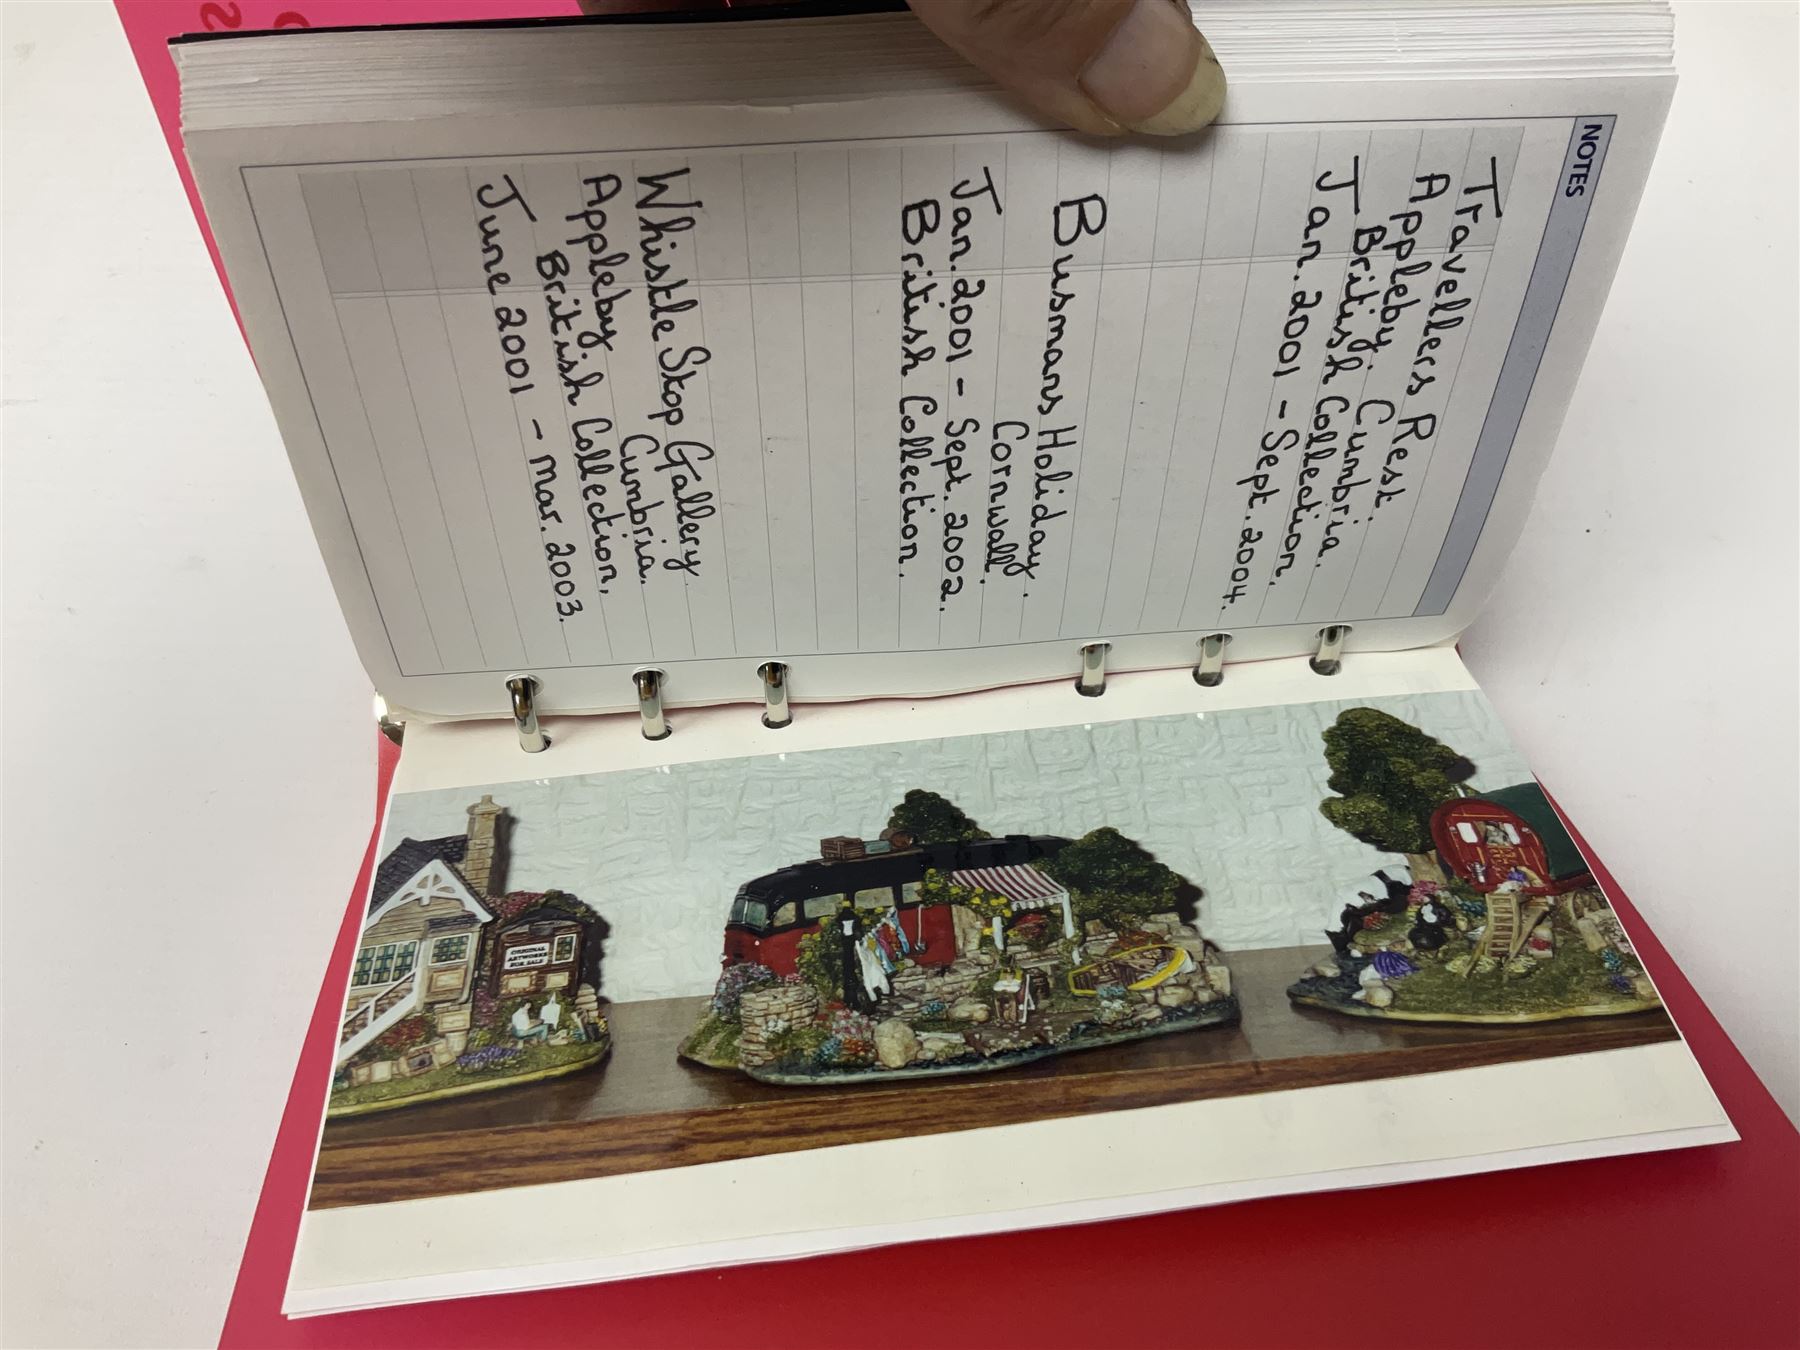 NOTES
Travellers Rest.
Appleby, Cumbria.
British Collection,
Jan. 2001 - Sept. 2004.
Busmans Holiday.
Cornwall.
Jan. 2001 - Sept. 2002.
British Collection.
Whistle Stop Gallery.
Cumbria.
Appleby
British Collection,
June 2001 - Mar. 2003.
ORIGINAL
ARTWORKS
FOR SALE